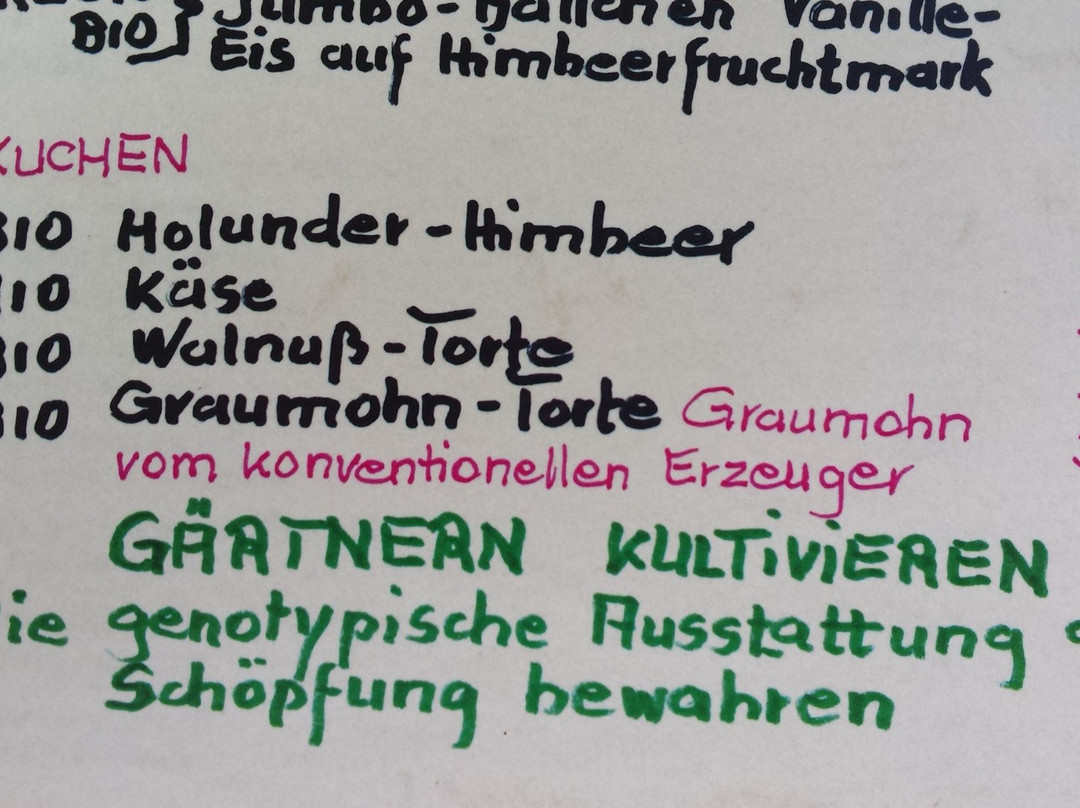 BIO} Jumbo-Bällchen Vanille-
Eis auf Himbeerfruchtmark
KUCHEN
BIO Holunder-Himbeer
BIO Käse
BIO Walnuß-Torte
BIO Graumohn-Torte Graumohn
vom konventionellen Erzeuger
GÄRTNERN KULTiViEREN
die genotypische Ausstattung
Schöpfung bewahren